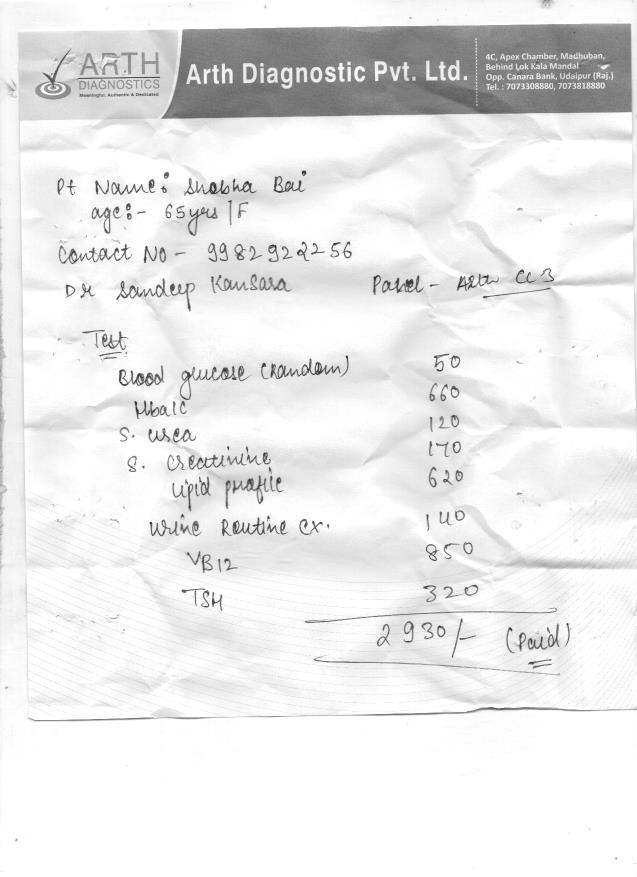 ARTH
DIAGNOSTICS
Meaningful, Authentic & Dedicated
Arth Diagnostic Pvt. Ltd.
4C, Apex Chamber, Madhuban,
Behind Lok Kala Mandal
Opp. Canara Bank, Udaipur (Raj.)
Tel. : 7073308880, 7073818880
Pt Name: Shobha Bai
age:- 65yrs/F
Contact No - 9982922256
Dr Sandeep Kansara Panel - Arth CC 3
Test
Blood glucose (Random) 50
Hba1c 660
S. urea 120
S. Creatinine 170
Lipid profile 620
Urine Routine Ex. 140
VB12 850
TSH 320
2930/- (Paid)